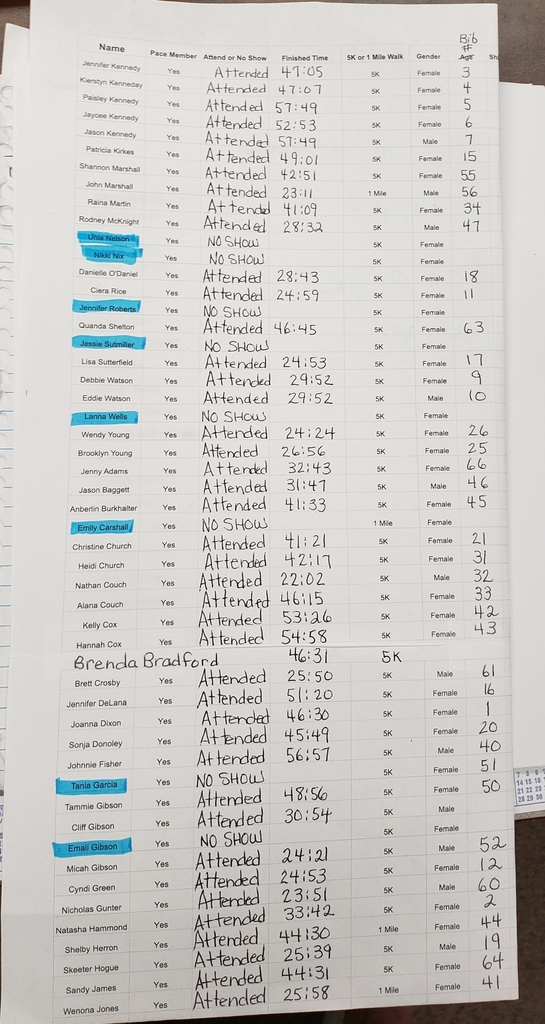 Bib
#
Name Pace Member Attend or No Show Finished Time 5K or 1 Mile Walk Gender Age Shi
Jennifer Kennedy Yes Attended 47:05 5K Female 3
Kierstyn Kenneday Yes Attended 47:07 5K Female 4
Paisley Kennedy Yes Attended 57:49 5K Female 5
Jaycee Kennedy Yes Attended 52:53 5K Female 6
Jason Kennedy Yes Attended 57:49 5K Male 7
Patricia Kirkes Yes Attended 49:01 5K Female 15
Shannon Marshall Yes Attended 42:51 5K Female 55
John Marshall Yes Attended 23:11 1 Mile Male 56
Raina Martin Yes Attended 41:09 5K Female 34
Rodney McKnight Yes Attended 28:32 5K Male 47
Uhla Nelson Yes NO SHOW 5K Female
Nikki Nix Yes NO SHOW 5K Female
Danielle O'Daniel Yes Attended 28:43 5K Female 18
Ciera Rice Yes Attended 24:59 5K Female 11
Jennifer Roberts Yes NO SHOW 5K Female
Quanda Shelton Yes Attended 46:45 5K Female 63
Jessie Sutmiller Yes NO SHOW 5K Female
Lisa Sutterfield Yes Attended 24:53 5K Female 17
Debbie Watson Yes Attended 29:52 5K Female 9
Eddie Watson Yes Attended 29:52 5K Male 10
Lanna Wells Yes NO SHOW 5K Female
Wendy Young Yes Attended 24:24 5K Female 26
Brooklyn Young Yes Attended 26:56 5K Female 25
Jenny Adams Yes Attended 32:43 5K Female 66
Jason Baggett Yes Attended 31:47 5K Male 46
Anberlin Burkhalter Yes Attended 41:33 5K Female 45
Emily Carshall Yes NO SHOW 1 Mile Female
Christine Church Yes Attended 41:21 5K Female 21
Heidi Church Yes Attended 42:17 5K Female 31
Nathan Couch Yes Attended 22:02 5K Male 32
Alana Couch Yes Attended 46:15 5K Female 33
Kelly Cox Yes Attended 53:26 5K Female 42
Hannah Cox Yes Attended 54:58 5K Female 43
Brenda Bradford 46:31 5K
Brett Crosby Yes Attended 25:50 5K Male 61
Jennifer DeLana Yes Attended 51:20 5K Female 16
Joanna Dixon Yes Attended 46:30 5K Female 1
Sonja Donoley Yes Attended 45:49 5K Female 20
Johnnie Fisher Yes Attended 56:57 5K Male 40
Tania Garcia Yes NO SHOW 5K Female 51
Tammie Gibson Yes Attended 48:56 5K Female 50
Cliff Gibson Yes Attended 30:54 5K Male
Emali Gibson Yes NO SHOW 5K Female
Micah Gibson Yes Attended 24:21 5K Male 52
Cyndi Green Yes Attended 24:53 5K Female 12
Nicholas Gunter Yes Attended 23:51 5K Male 60
Natasha Hammond Yes Attended 33:42 5K Female 2
Shelby Herron Yes Attended 44:30 1 Mile Female 44
Skeeter Hogue Yes Attended 25:39 5K Male 19
Sandy James Yes Attended 44:31 5K Female 64
Wenona Jones Yes Attended 25:58 1 Mile Female 41